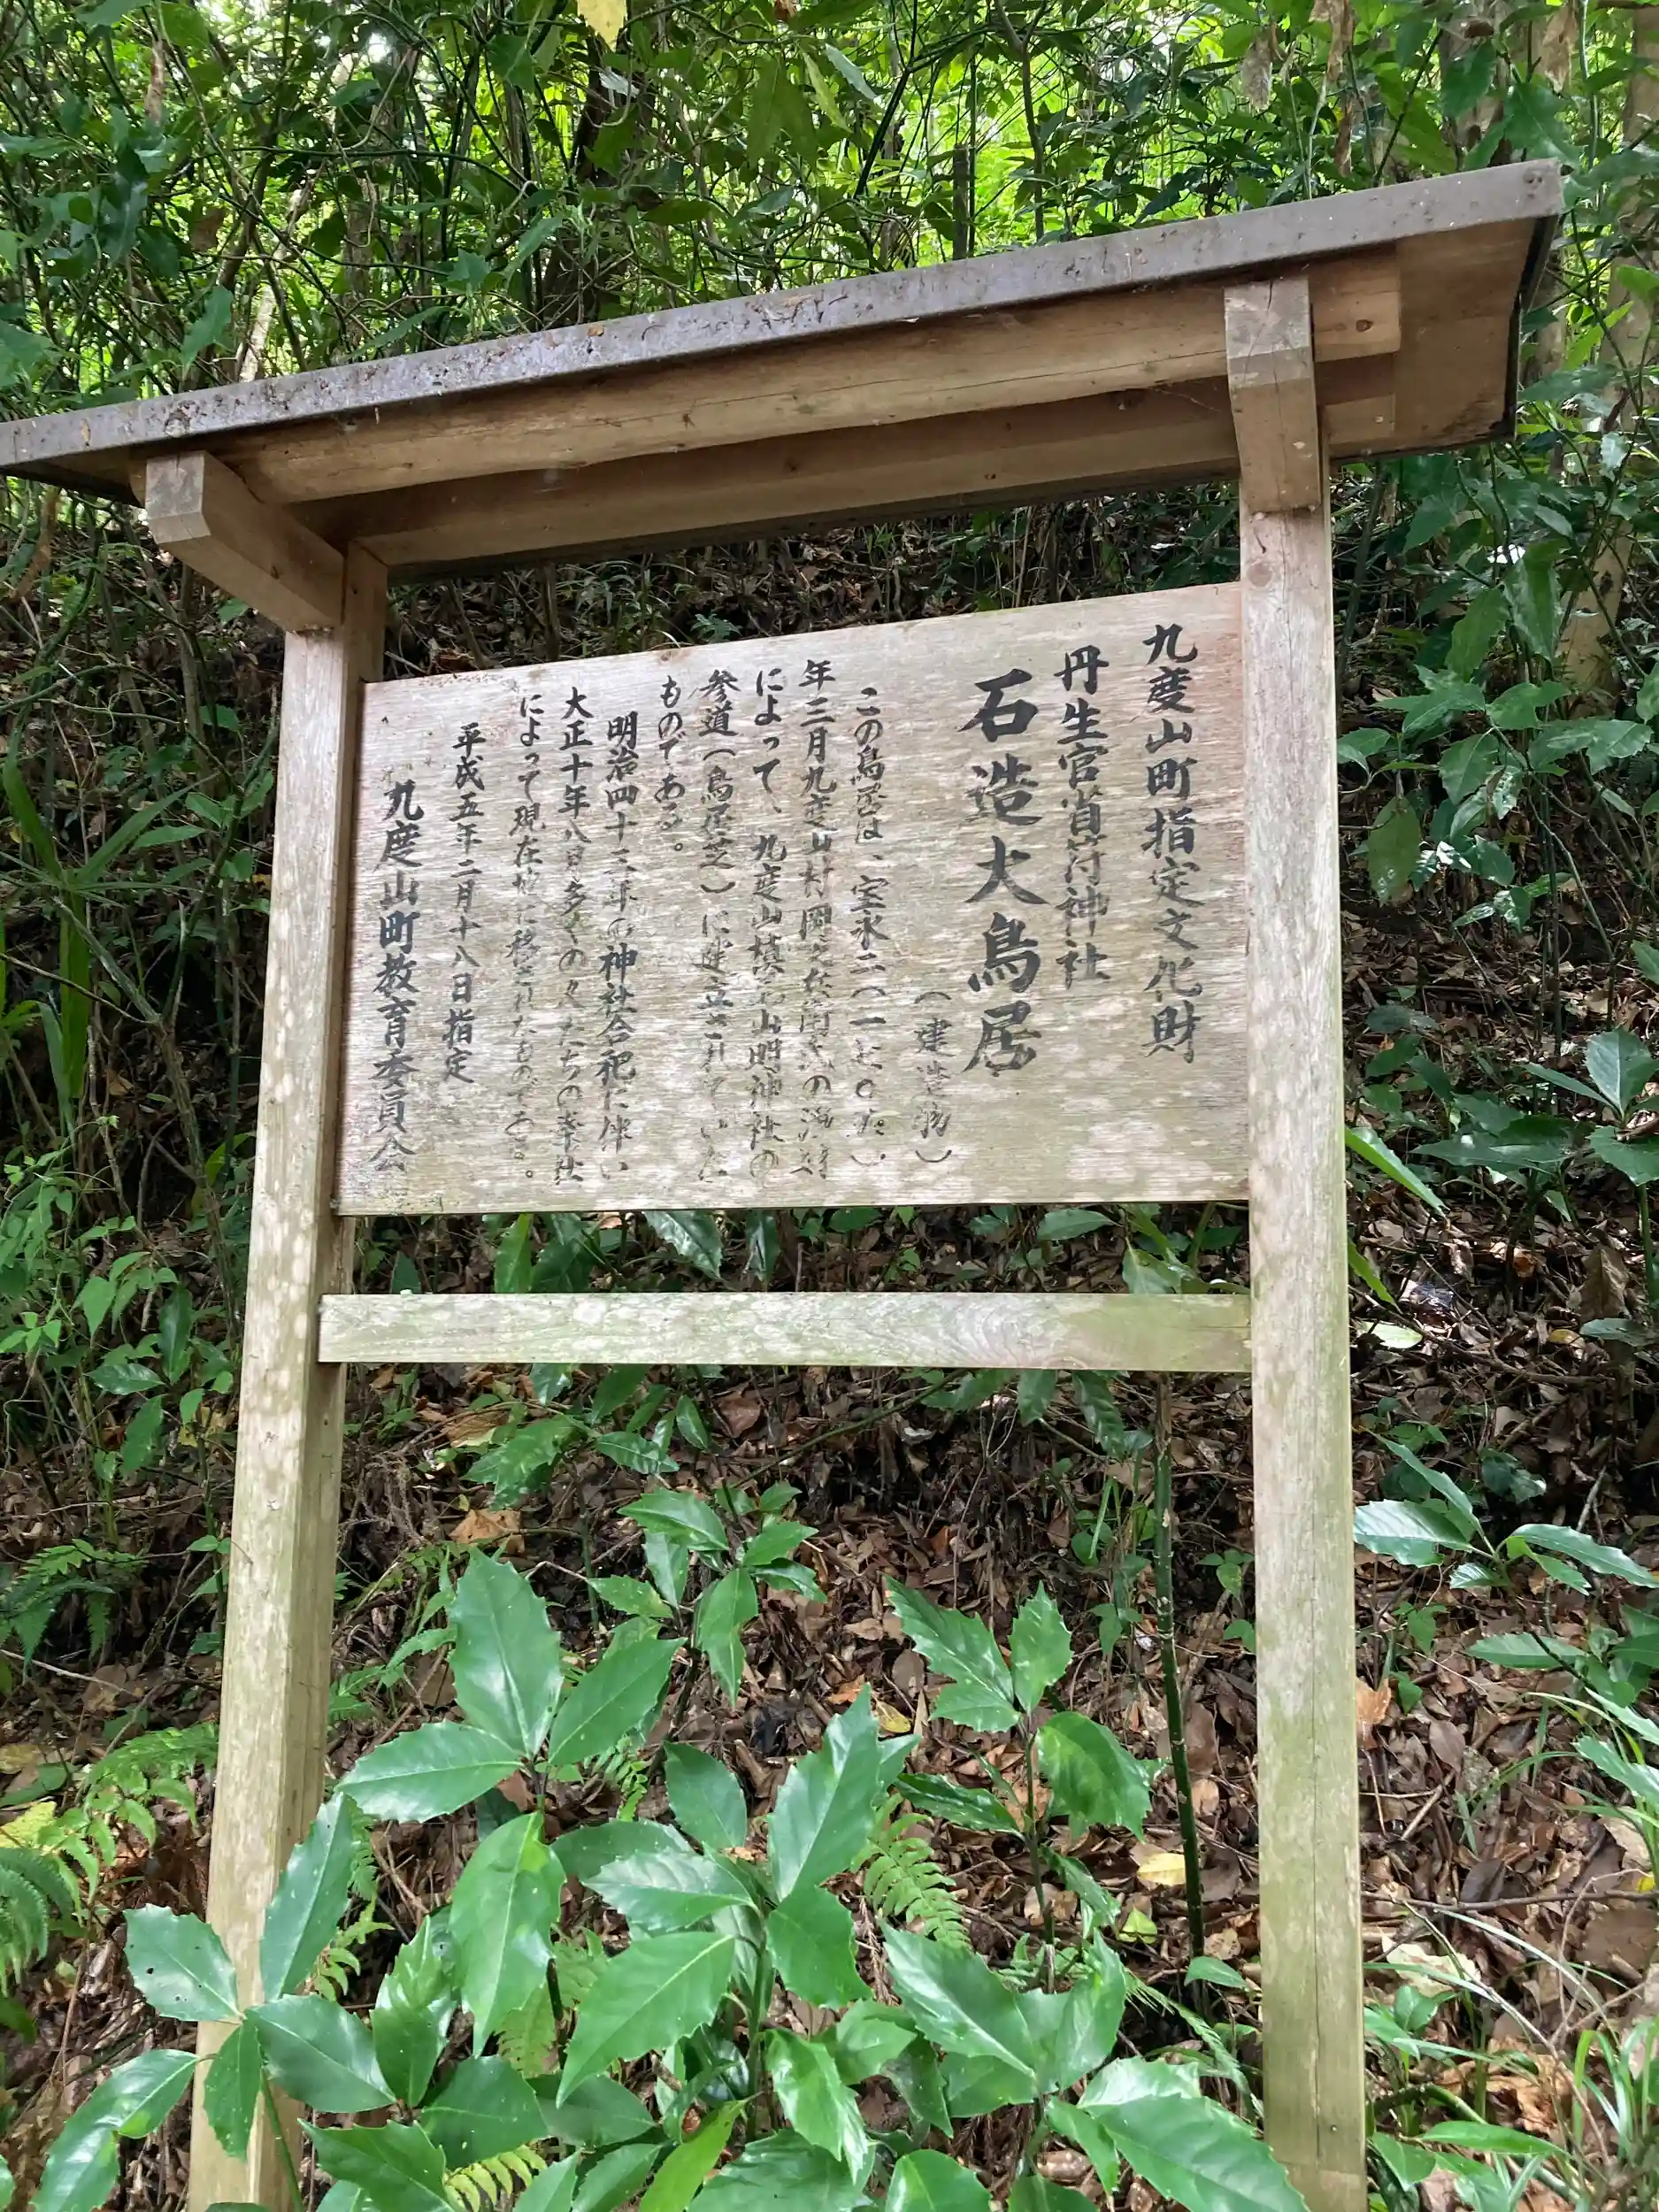 九度山町指定文化財
丹生官省符神社
石造大鳥居
（建造物）
この鳥居は、宝永二（一七〇五）
年二月九度山村岡
によって、九度山槙尾山明神社の
参道（鳥居芝）に建立されていた
ものである。
明治四十三年の神社合祀に伴い
大正十年八月多くの人たちの奉仕
によって現在地に移されたものである。
平成五年二月十八日指定
九度山町教育委員会